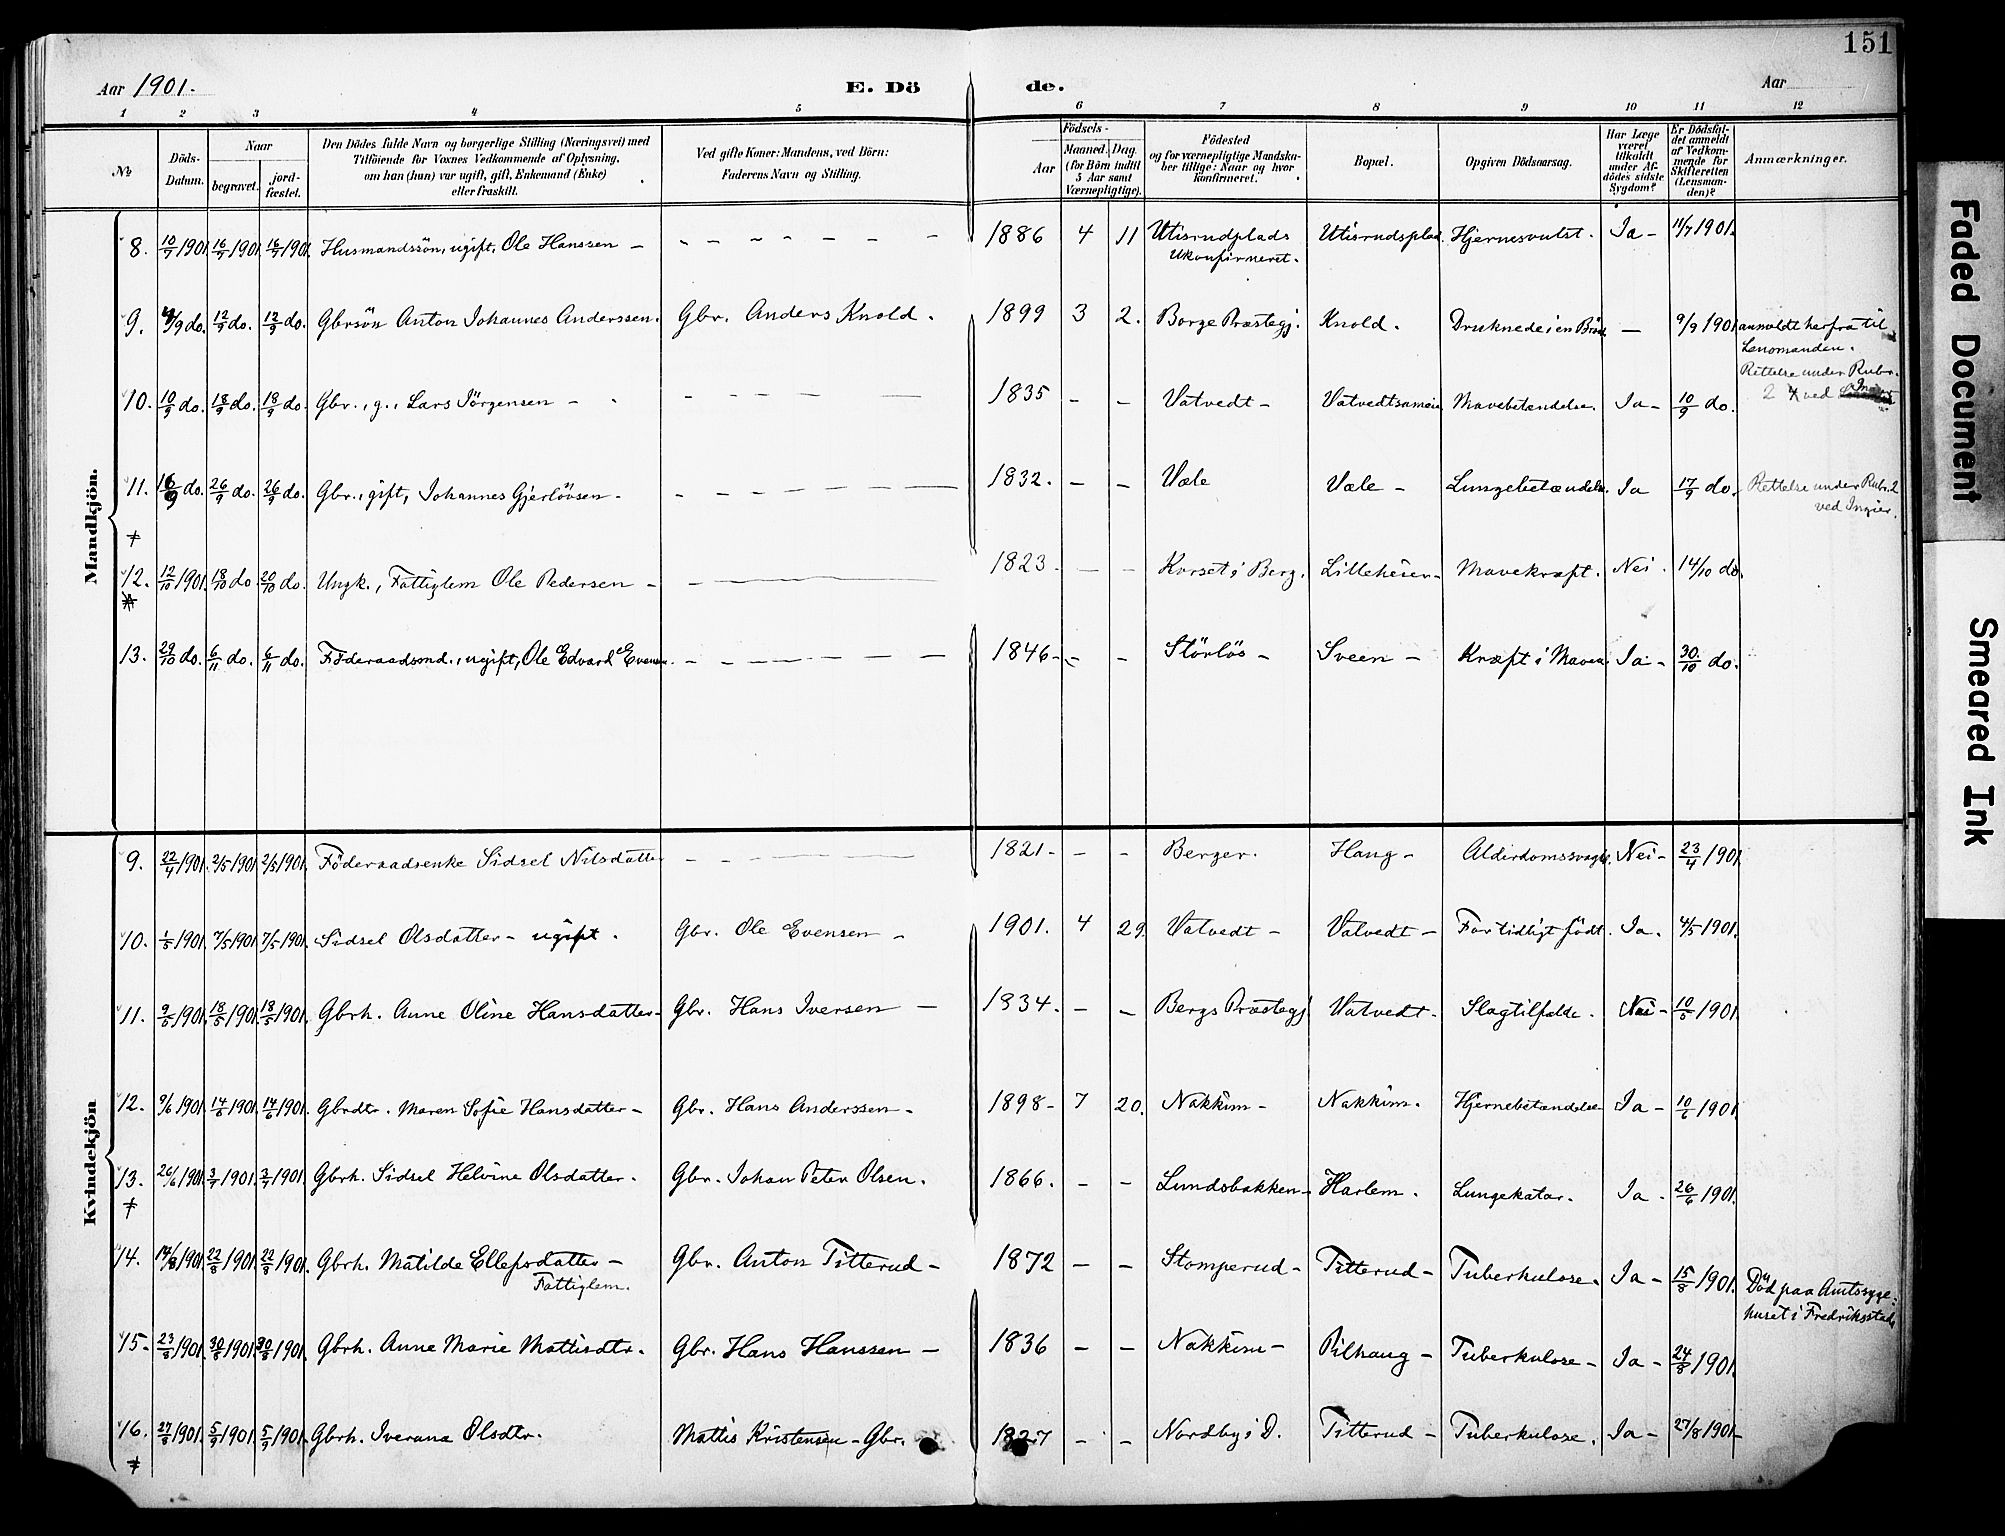 151
Aar 1901.
E. Döde.
Aar
1 2 3 4 5 6 7 8 9 10 11 12
№
Döds-Datum.
Naar
begravet.
jord-fæstet.
Den Dödes fulde Navn og borgerlige Stilling (Næringsvei) med Tilföiende for Voxnes Vedkommende af Oplysning, om han (hun) var ugift, gift, Enkemand (Enke) eller fraskilt.
Ved gifte Koner: Mandens, ved Börn: Faderens Navn og Stilling.
Födsels-
Aar
Maaned. Dag.
(for Börn indtil 5 Aar samt Værnepligtige).
Födested og for værnepligtige Mandskaber tillige: Naar og hvor konfirmeret.
Bopæl.
Opgiven Dödsaarsag.
Har Læge været tilkaldt under Afdödes sidste Sygdom?
Er Dödsfaldet anmeldt af Vedkommende for Skifteretten (Lensmanden)?
Anmærkninger.
Mandkjön.
8. 10/7 1901 16/7 1901 16/7 1901. Husmandssön, ugift, Ole Hanssen – 1886 4 11 Utisrudplads Ukonfirmeret. Utisrudsplad. Hjernesvulst. Ja – 11/7 1901.
9. /9 do. 12/9 do. 12/9 do. Gbrsön Anton Johannes Anderssen. Gbr. Anders Knold. 1899 3 2. Borge Præstegj. Knold. Druknede i en Brönd — 9/9 1901 anmeldt herfra til Lensmanden.
Rettelse under Rubr. 2 ved
10. 10/9 do. 18/9 do. 18/9 do. Gbr., g., Lars Jörgensen – 1835 – – Vatvedt – Vatvedtsameie Mavebetændelse. Ja – 10/9 do.
11. 16/9 do. 26/9 do. 26/9 do. Gbr., gift, Johannes Gjerlövsen – 1832. – – Væle Væle – Lungebetændelse. Ja 17/9 do. Rettelse under Rubr. 2 ved Ingier.
12. 12/10 1901. 18/10 do 20/10 do. Ungk., Fattiglem Ole Pedersen – 1823 – – Korset i Berg. Lilleheien – Mavekræft. Nei. 14/10 do.
13. 29/10 do. 6/11 do. 6/11 do. Föderaadsmd., ugift, Ole Edvard Evensen. 1846 – – – Störlös – Sveen – Kræft i Maven. Ja – 30/10 do.
Kvindekjön
9. 22/4 1901. 2/5 1901 2/5 1901. Föderaadsenke Sidsel Nilsdatter 1821 – – – Berger. Haug – Alderdomssvagh. Nei – 23/4 1901
10. 1/5 1901. 7/5 1901 7/5 1901. Sidsel Olsdatter – ugift. Gbr. Ole Evensen – 1901. 4 29. Vatvedt – Vatvedt – For tidligt födt. Ja. 4/5 1901.
11. 9/5 1901. 18/5 1901. 18/5 1901. Gbrh. Anne Oline Hansdatter – Gbr. Hans Iversen – 1834. – – Bergs Præstegj Vatvedt. Slagtilfælde. Nei – 10/5 1901.
12. 9/6 1901. 14/6 1901. 14/6 1901. Gbrdtr. Maren Sofie Hansdatter – Gbr. Hans Anderssen – 1898 – 7 20. Nakkim – Nakkim. Hjernebetændelse Ja – 10/6 1901.
13. 26/6 1901. 3/7 1901. 3/7 1901. Gbrh. Sidsel Helvine Olsdatter. Gbr. Johan Peter Olsen. 1866. – – Lundsbakken – Harlem. Lungekatar. Ja. 26/6 1901.
14. 14/8 1901 22/8 1901. 22/8 1901. Gbrh. Matilde Ellefsdatter – Fattiglem. Gbr. Anton Titterud – 1872 – – Stomperud – Titterud – Tuberkulose. Ja – 15/8 1901. Död paa Amtssygehuset i Fredriksstad
15. 23/8 1901. 30/8 1901. 30/8 1901. Gbrh. Anne Marie Mattisdtr. Gbr. Hans Hanssen – 1836 – – Nakkim – Pilhaug – Tuberkulose – Ja – 24/8 1901.
16. 27/8 1901. 5/9 1901. 5/9 1901. Gbrh. Iverana Olsdtr. Mattis Kristensen – Gbr. 1827 – – Nordby i D. Titterud – Tuberkulose. Ja – 27/8 1901 –
Faded Document
Smeared Ink